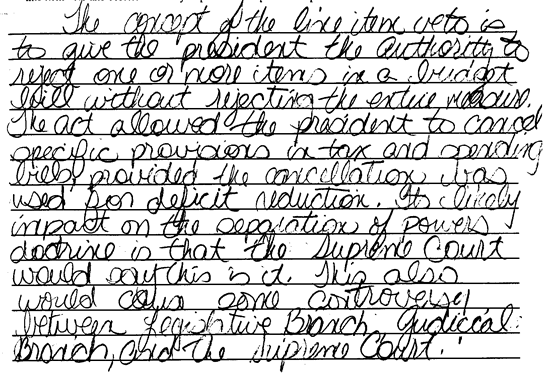 The concept of the line item veto is
to give the president the authority to
reject one or more items in a budget
bill without rejecting the entire measure.
The act allowed the president to cancel
specific provisions in tax and spending
bills, provided the cancellation was
used for deficit reduction. Its likely
impact on the separation of powers
doctrine is that the Supreme Court
would say this is it. This also
would cause some controversy
between Legislative Branch, Judiccal
Branch, and the Supreme Court.